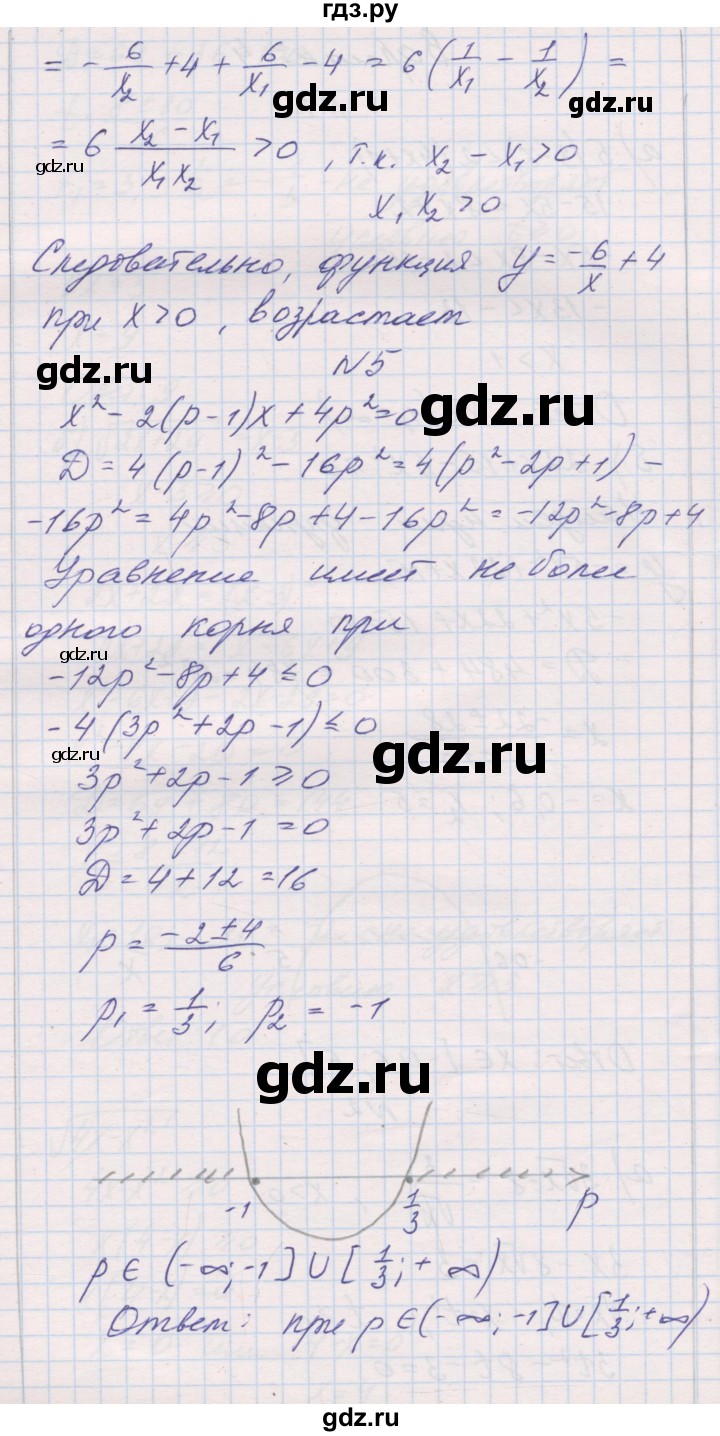 гдз.ру
= - 6/x₂ + 4 + 6/x₁ - 4 = 6(1/x₁ - 1/x₂) =
gdz.ru
gdz.ru
= 6 (x₂ - x₁)/(x₁x₂) > 0 , т.к. x₂ - x₁ > 0
gdz.ru
x₁x₂ > 0
Следовательно, функция y = -6/x + 4
при x > 0 , возрастает
gdz.ru
N5
x² - 2(p-1)x + 4p² = 0
gdz.ru
D = 4(p-1)² - 16p² = 4(p² - 2p + 1) -
-16p² = 4p² - 8p + 4 - 16p² = -12p² - 8p + 4
Уравнение имеет не более
одного корня при
gdz.ru
-12p² - 8p + 4 ≤ 0
-4(3p² + 2p - 1) ≤ 0
gdz.ru
3p² + 2p - 1 ≥ 0
3p² + 2p - 1 = 0
D = 4 + 12 = 16
p = (-2 ± 4)/6
p₁ = 1/3; p₂ = -1
gdz.ru
-1 1/3 p
p ∈ (-∞; -1] ∪ [1/3; +∞)
Ответ: при p ∈ (-∞; -1] ∪ [1/3; +∞)
gdz.ru